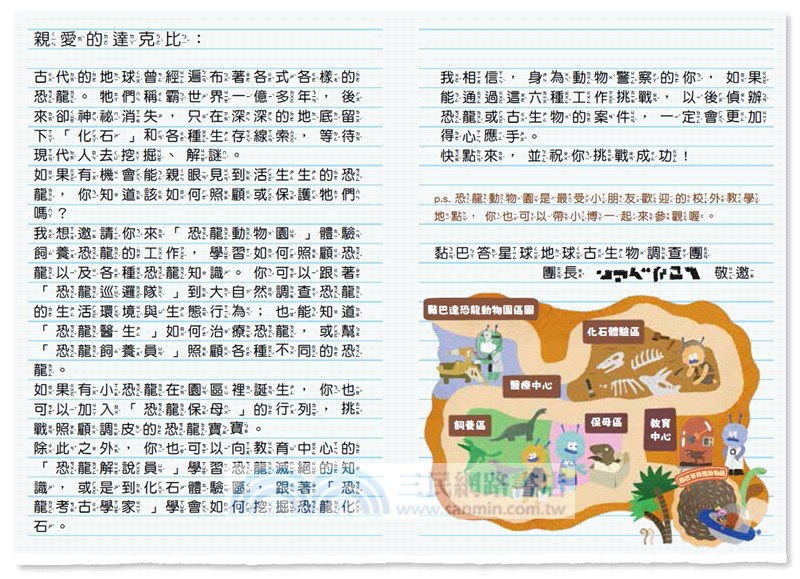 親愛的達克比：
古代的地球曾經遍布著各式各樣的
恐龍。牠們稱霸世界一億多年，後
來卻神祕消失，只在深深的地底留
下「化石」和各種生存線索，等待
現代人去挖掘、解謎。
如果有機會能親眼見到活生生的恐
龍，你知道該如何照顧或保護牠們
嗎？
我想邀請你來「恐龍動物園」體驗
飼養恐龍的工作，學習如何照顧恐
龍以及各種恐龍知識。你可以跟著
「恐龍巡邏隊」到大自然調查恐龍
的生活環境與生態行為；也能知道
「恐龍醫生」如何治療恐龍，或幫
「恐龍飼養員」照顧各種不同的恐
龍。
如果有小恐龍在園區裡誕生，你也
可以加入「恐龍保母」的行列，挑
戰照顧調皮的恐龍寶寶。
除此之外，你也可以向教育中心的
「恐龍解說員」學習恐龍滅絕的知
識，或是到化石體驗區，跟著「恐
龍考古學家」學會如何挖掘恐龍化
石。
我相信，身為動物警察的你，如果
能通過這六種工作挑戰，以後偵辦
恐龍或古生物的案件，一定會更加
得心應手。
快點來，並祝你挑戰成功！
p.s. 恐龍動物園是最受小朋友歡迎的校外教學
地點，你也可以帶小博一起來參觀喔。
黏巴答星球地球古生物調查團
團長 敬邀
黏巴達恐龍動物園區圖
化石體驗區
醫療中心
飼養區
保母區
教育
中心
三民網路書店
www.sanmin.com.tw